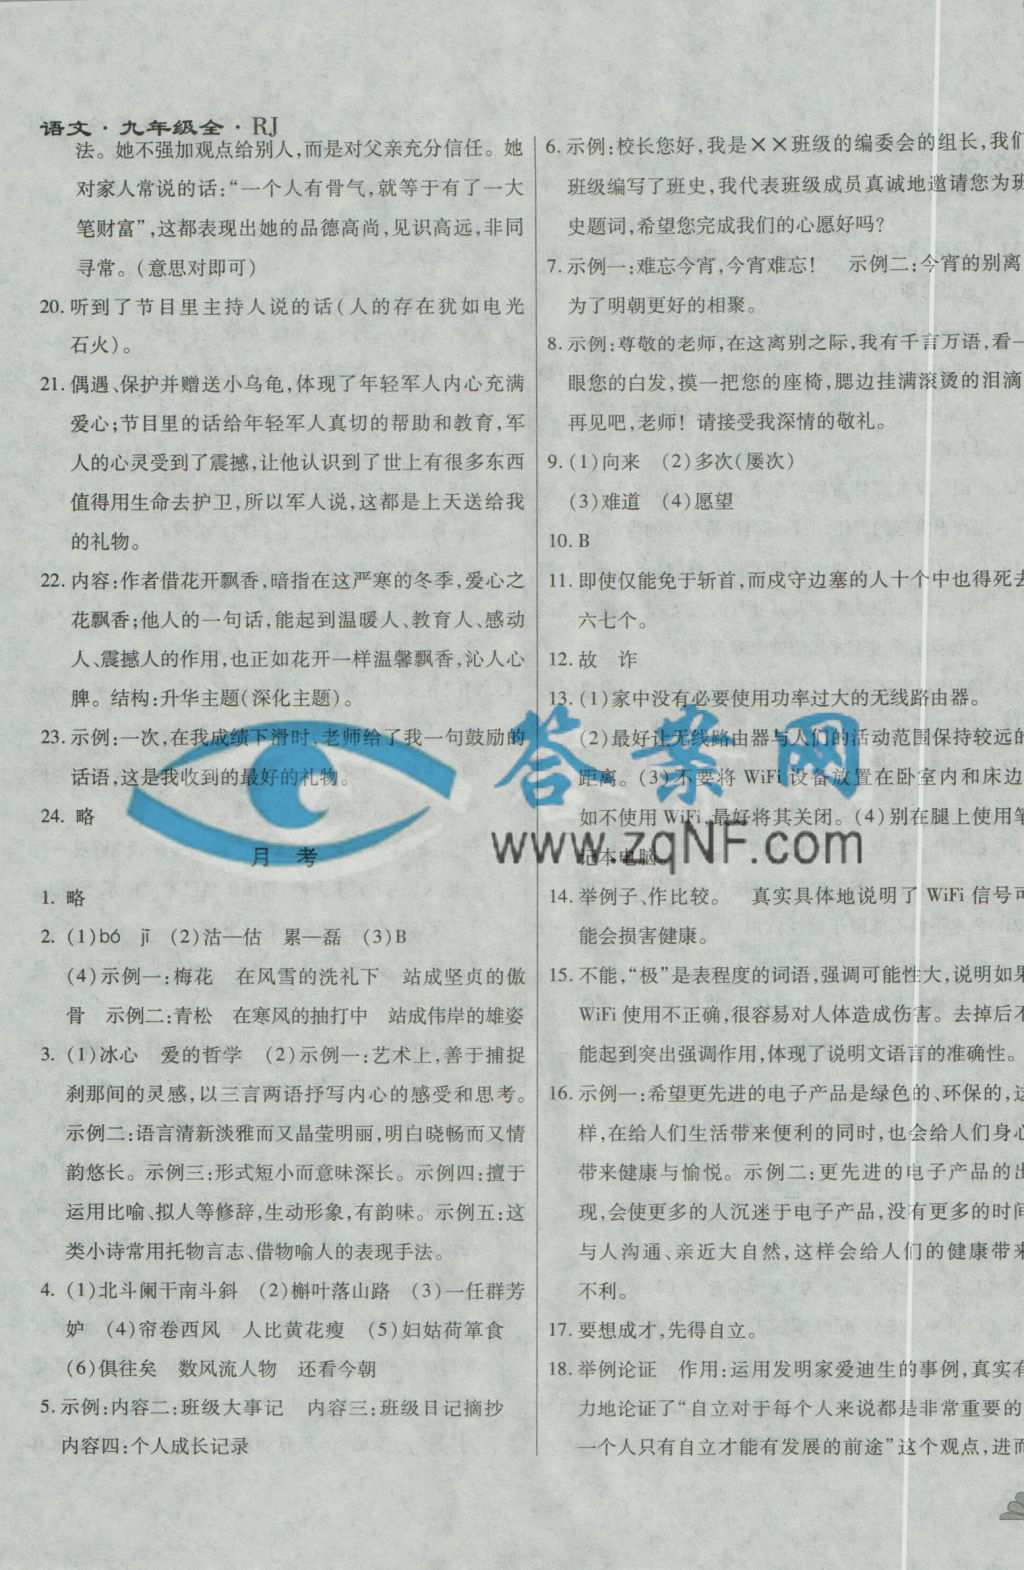 语文·九年级全·RJ
法。她不强加观点给别人,而是对父亲充分信任。她
对家人常说的话:“一个人有骨气,就等于有了一大
笔财富”,这都表现出她的品德高尚,见识高远,非同
寻常。(意思对即可)
20. 听到了节目里主持人说的话(人的存在犹如电光
石火)。
21. 偶遇、保护并赠送小乌龟,体现了年轻军人内心充满
爱心;节目里的话给年轻军人真切的帮助和教育,军
人的心灵受到了震撼,让他认识到了世上有很多东西
值得用生命去护卫,所以军人说,这都是上天送给我
的礼物。
22. 内容:作者借花开飘香,暗指在这严寒的冬季,爱心之
花飘香;他人的一句话,能起到温暖人、教育人、感动
人、震撼人的作用,也正如花开一样温馨飘香,沁人心
脾。结构:升华主题(深化主题)。
23. 示例:一次,在我成绩下滑时,老师给了我一句鼓励的
话语,这是我收到的最好的礼物。
24. 略
月 考
1. 略
2. (1)bó jī (2)沽—估 累—磊 (3)B
(4)示例一:梅花 在风雪的洗礼下 站成坚贞的傲
骨 示例二:青松 在寒风的抽打中 站成伟岸的雄姿
3. (1)冰心 爱的哲学 (2)示例一:艺术上,善于捕捉
刹那间的灵感,以三言两语抒写内心的感受和思考。
示例二:语言清新淡雅而又晶莹明丽,明白晓畅而又情
韵悠长。示例三:形式短小而意味深长。示例四:擅于
运用比喻、拟人等修辞,生动形象,有韵味。示例五:这
类小诗常用托物言志、借物喻人的表现手法。
4. (1)北斗阑干南斗斜 (2)槲叶落山路 (3)一任群芳
妒 (4)帘卷西风 人比黄花瘦 (5)妇姑荷箪食
(6)俱往矣 数风流人物 还看今朝
5. 示例:内容二:班级大事记 内容三:班级日记摘抄
内容四:个人成长记录
6. 示例:校长您好,我是××班级的编委会的组长,我们
班级编写了班史,我代表班级成员真诚地邀请您为班
史题词,希望您完成我们的心愿好吗?
7. 示例一:难忘今宵,今宵难忘! 示例二:今宵的别离
为了明朝更好的相聚。
8. 示例:尊敬的老师,在这离别之际,我有千言万语,看一
眼您的白发,摸一把您的座椅,腮边挂满滚烫的泪滴
再见吧,老师!请接受我深情的敬礼。
9. (1)向来 (2)多次(屡次)
(3)难道 (4)愿望
10. B
11. 即使仅能免于斩首,而戍守边塞的人十个中也得死去
六七个。
12. 故 诈
13. (1)家中没有必要使用功率过大的无线路由器。
(2)最好让无线路由器与人们的活动范围保持较远的
距离。(3)不要将 WiFi 设备放置在卧室内和床边
如不使用 WiFi,最好将其关闭。(4)别在腿上使用笔
记本电脑。
14. 举例子、作比较。 真实具体地说明了 WiFi 信号可
能会损害健康。
15. 不能,“极”是表程度的词语,强调可能性大,说明如果
WiFi 使用不正确,很容易对人体造成伤害。去掉后不
能起到突出强调作用,体现了说明文语言的准确性。
16. 示例一:希望更先进的电子产品是绿色的、环保的,这
样,在给人们生活带来便利的同时,也会给人们身心
带来健康与愉悦。示例二:更先进的电子产品的出
现,会使更多的人沉迷于电子产品,没有更多的时间
与人沟通、亲近大自然,这样会给人们的健康带来
不利。
17. 要想成才,先得自立。
18. 举例论证 作用:运用发明家爱迪生的事例,真实有
力地论证了“自立对于每个人来说都是非常重要的
一个人只有自立才能有发展的前途”这个观点,进而
答案网
www.zqNF.com